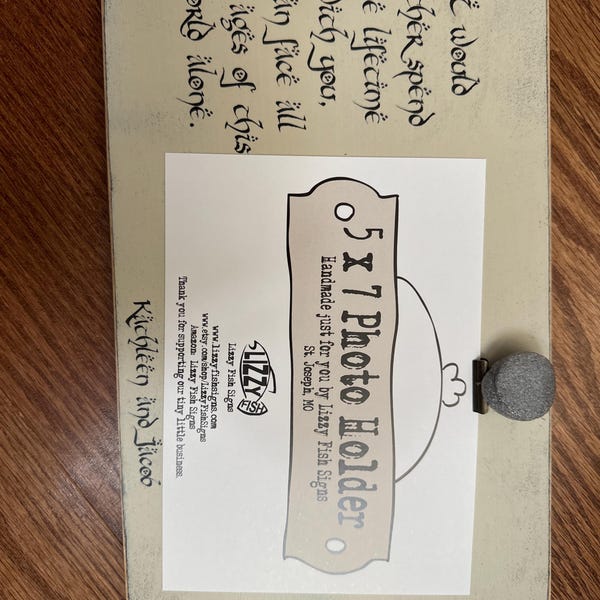 I would
ther spend
e lifetime
ith you,
an face all
ages of this
orld alone.
5 x 7 Photo Holder
Handmade just for you by Lizzy Fish Signs
St. Joseph, MO
LIZZY
FISH
Lizzy Fish Signs
www.lizzyfishsigns.com
www.etsy.com/shop/LizzyFishSigns
Amazon: Lizzy Fish Signs
Thank you for supporting our tiny little business.
Kathleen and Jacob